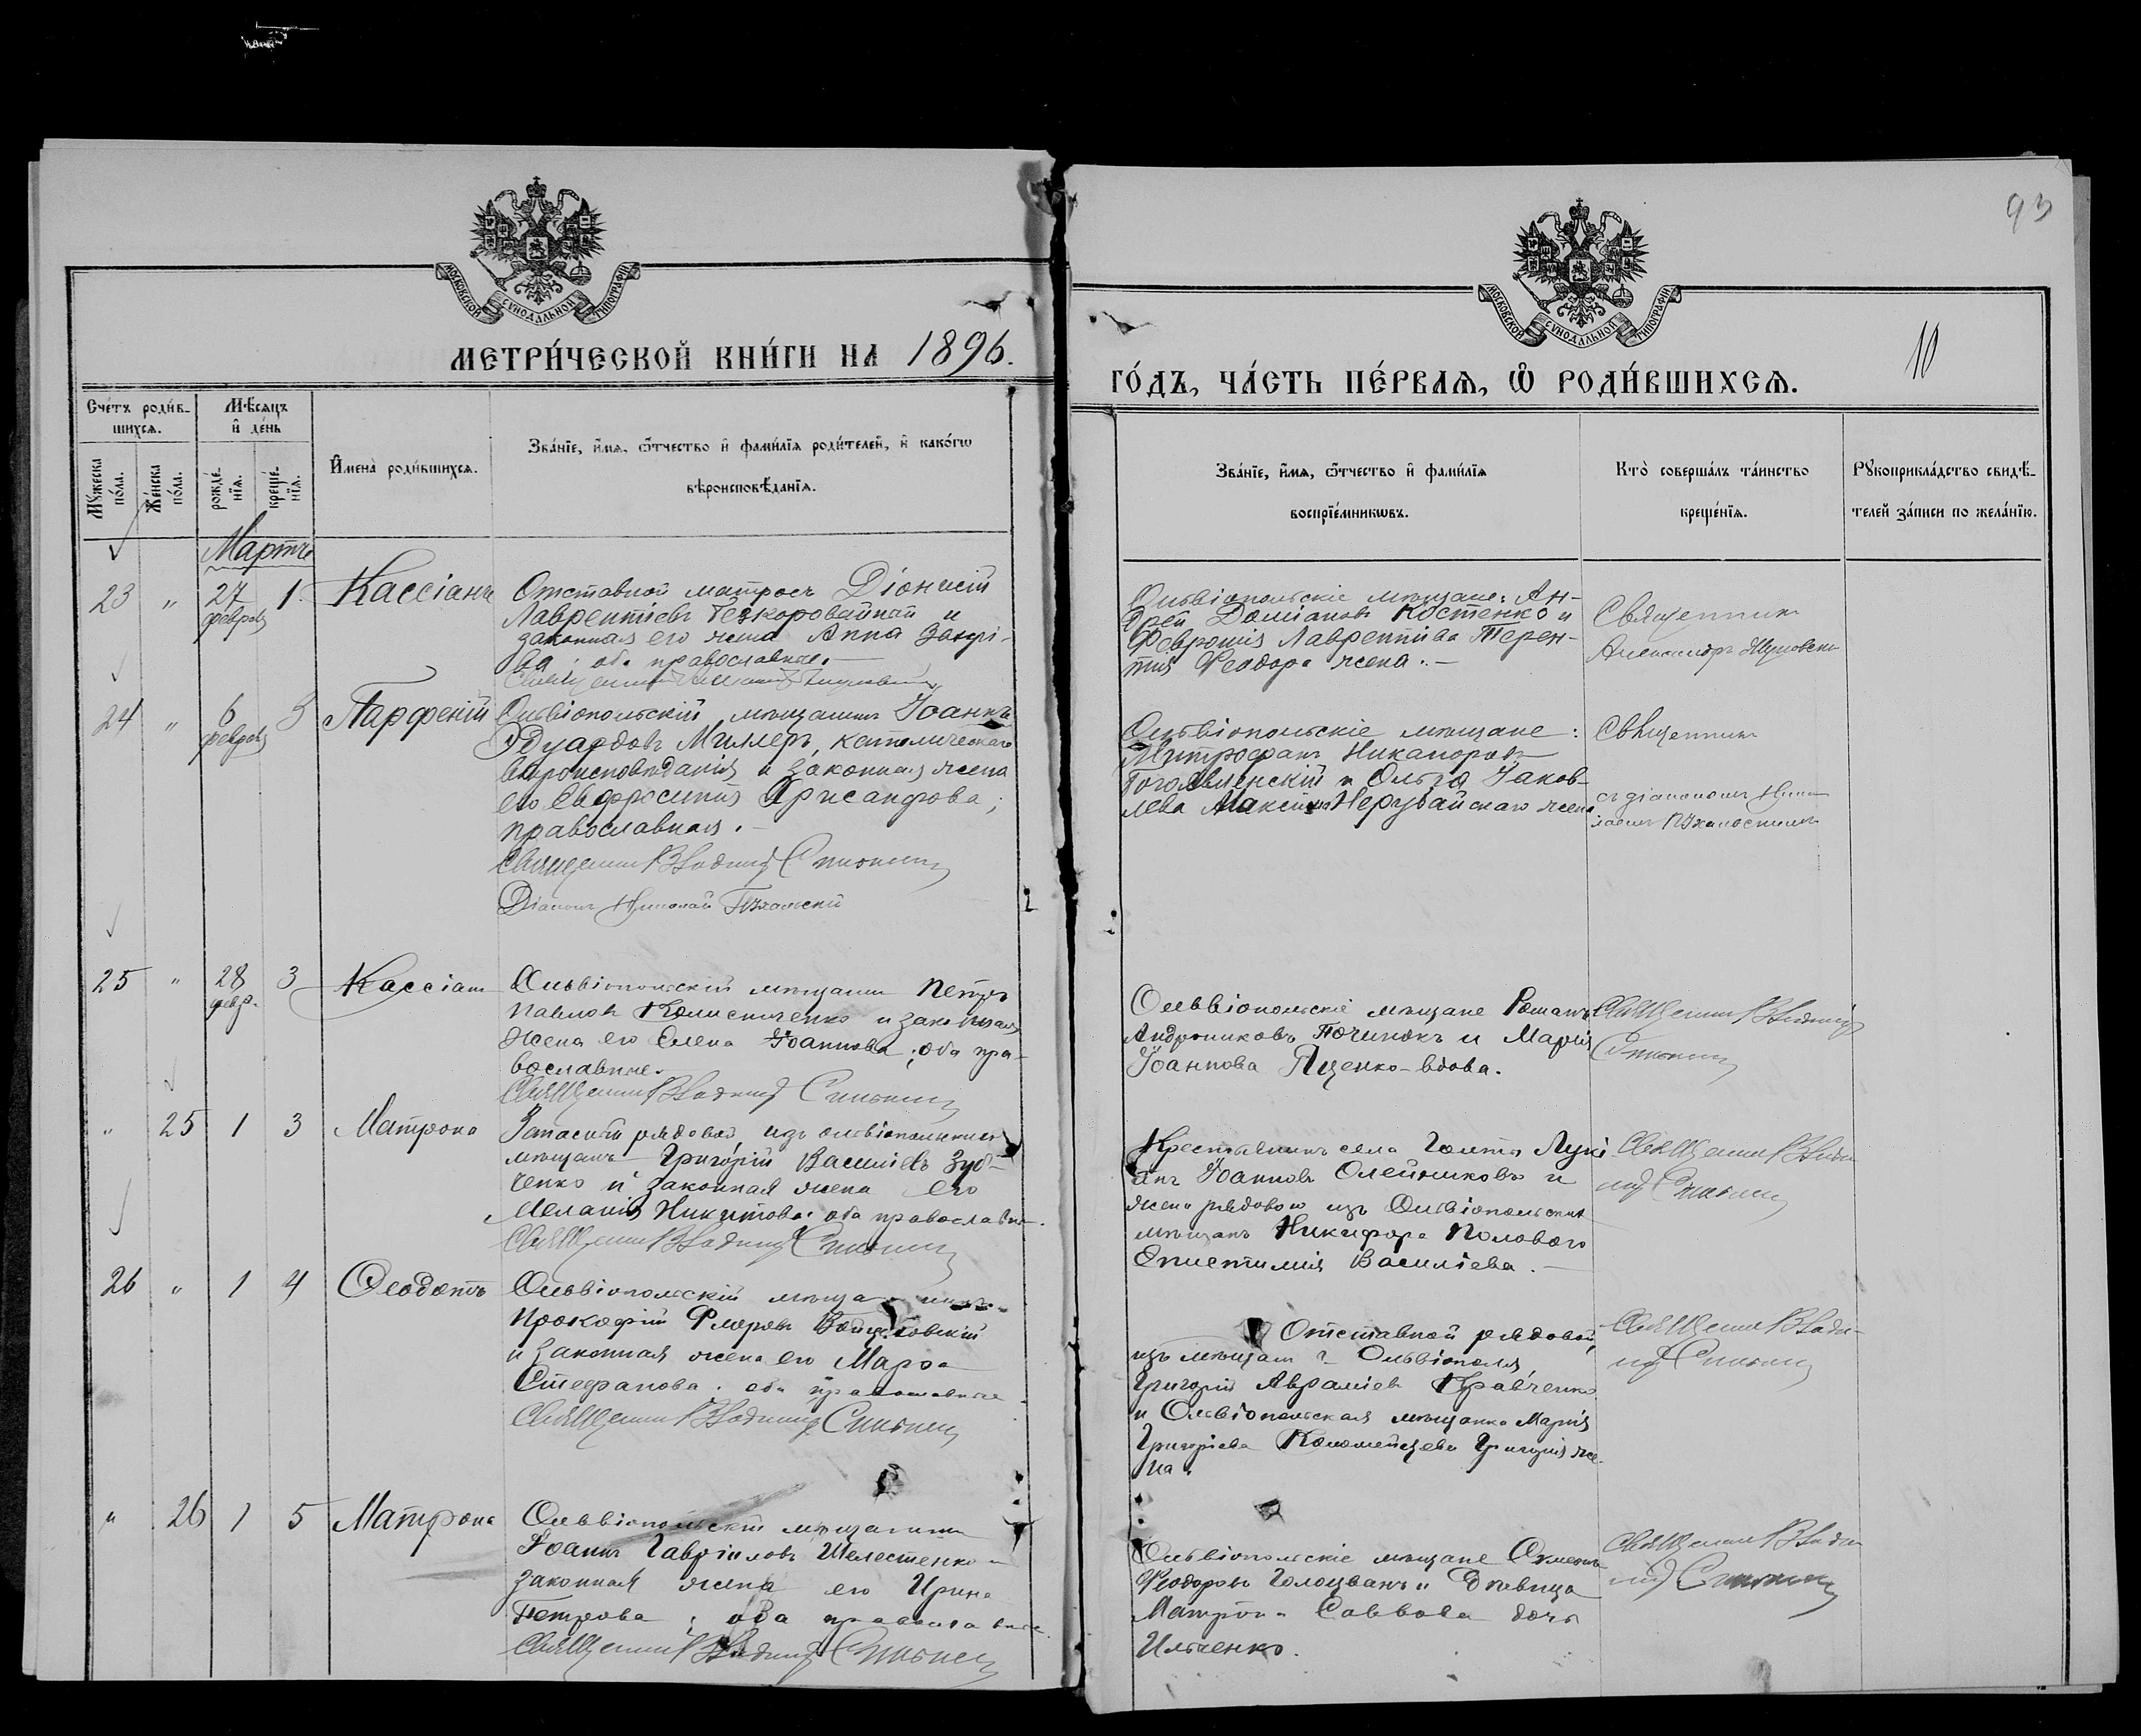 93
МОСКОВСКОЙ СѴНОДАЛЬНОЙ ТИПОГРАФІИ
МОСКОВСКОЙ СѴНОДАЛЬНОЙ ТИПОГРАФІИ
МЕТРИ́ЧЕСКОЙ КНИ́ГИ НА 1896.
ГО́ДЪ, ЧА́СТЬ ПЕ́РВАѦ, Ѡ РОДИ́ВШИХСѦ.
10
Сче́тъ роди́в-
шихсѧ.
Мѣсѧцъ
и҆ де́нь
Мꙋ́жеска
по́ла.
Же́нска
по́ла.
рожде́-
нїѧ.
креще́-
нїѧ.
И҆мена̀ роди́вшихсѧ.
Зва́нїе, и҆́мѧ, ѻ҆́тчество и҆ фами́лїѧ роди́телей, и҆ како́гѡ
вѣроисповѣ́данїѧ.
Зва́нїе, и҆́мѧ, ѻ҆́тчество и҆ фами́лїѧ
воспрїе́мникѡвъ.
Кто̀ соверша́лъ та́инство
креще́нїѧ.
Рꙋкоприкла́дство свидѣ́-
телей за́писи по жела́нїю.
Мартъ
23 " 27 1. Кассіанъ
февраля
Отставной матросъ Діонисій
Лаврентіевъ Безкоровайный и
законная его жена Анна
ва; оба православные.
Ольвіопольскіе мѣщане: Ан-
дрей Доміановъ Костенко и
Февронія Лаврентіева Терен-
тія Феодора жена.
Священникъ
Александръ
24 " 6 3 Парфеній
февраля
Ольвіопольскій мѣщанинъ Іоаннъ
Эдуардовъ Миллеръ, католическаго
вѣроисповѣданія и законная жена
его Евфросинія Хрисанфова;
православная.
Священникъ Владимір
Діаконъ Николай
Ольвіопольскіе мѣщане:
Митрофанъ Никаноровъ
Богоявленскій и Ольга Іаков-
лева Максима Нерубайскаго жена
Священникъ
съ діакономъ Нико
лаемъ
25 " 28 3 Кассіан
февр.
Ольвіопольскій мѣщанин Петръ
Павлов Колисниченко и законная
жена его Елена Іоаннова; оба пра-
вославные.
Священник Владимір
Ольвіопольскіе мѣщане Романъ
Андрониковъ Починокъ и Марія
Іоаннова Яценко-вдова.
Священник Владимір
" 25 1 3 Матрона
Запасный рядовой, изъ ольвіопольских
мѣщанъ Григорій Василіевъ Зуб-
ченко и законная жена его
Меланія Никитова; оба православн.
Священник Владимір
Крестьянинъ села Голты Лукі-
анъ Іоанновъ Олейниковъ и
жена рядового изъ Ольвіопольских
мѣщанъ Никифора Полового
Епистимія Василіева.
Священник Влади
мір
26 " 1 4 Феодотъ
Ольвіопольскій мѣщанинъ
Прокофій Флоровъ
и законная жена его Марѳа
Стефанова; оба православные
Священник Владимір
Отставной рядовой,
изъ мѣщан г. Ольвіополя,
Григорій Авраміев Кравченко
и Ольвіопольская мѣщанка Марія
Григоріева Коломейцева Григорія же-
на.
Священник Влади-
мір
" 26 1 5 Матрона
Ольвіопольскій мѣщанинъ
Іоаннъ Гавріиловъ Шелестенко и
законная жена его Ирина
Петрова; оба православные.
Священник Владимір
Ольвіопольскіе мѣщане
Феодоровъ Голоцванъ и дѣвица
Матрона Саввова дочь
Ильченко.
Священник Влади
мір